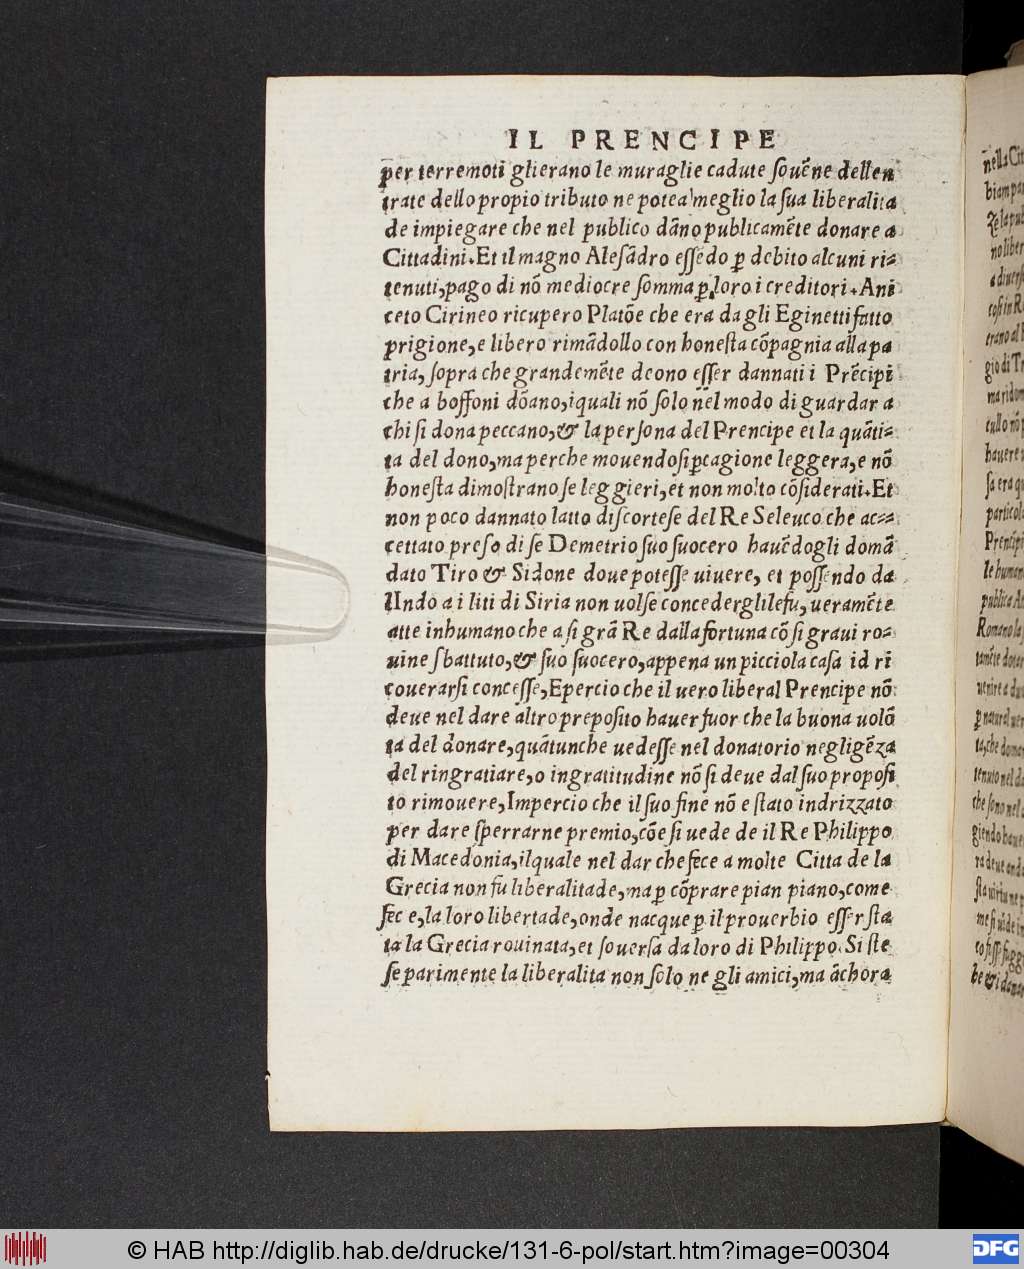 IL PRENCIPE
per terremoti glierano le muraglie cadute souẽne dellen
trate dello propio tributo ne potea meglio la sua liberalita
de impiegare che nel publico dãno publicamẽte donare a
Cittadini. Et il magno Alesãdro essẽdo ꝑ debito alcuni ri⸗
tenuti, pago di nõ mediocre somma ꝑ loro i creditori. Ani
ceto Cirineo ricupero Platõe che era da gli Eginetti fatto
prigione, e libero rimãdollo con honesta cõpagnia alla pa
tria, sopra che grandemẽte deono esser dannati i Prẽcipi
che a boffoni dõano, iquali nõ solo nel modo di guardar a
chi si dona peccano, & la persona del Prencipe et la quãti⸗
ta del dono, ma perche mouendosi ꝑ cagione leggera, e nõ
honesta dimostrano se leggieri, et non molto cõsiderati. Et
non poco dannato latto discortese del Re Seleuco che ac⸗⸗
cettato preso di se Demetrio suo suocero hauẽdogli domã
dato Tiro & Sidone doue potesse uiuere, et possendo da
lIndo a i liti di Siria non uolse concederglilefu, ueramẽte
atte inhumano che a si grã Re dalla fortuna cõ si graui ro⸗
uine sbattuto, & suo suocero, appena un picciola casa id ri
couerarsi concesse, Epercio che il uero liberal Prencipe nõ
deue nel dare altro preposito hauer fuor che la buona uolõ
ta del donare, quãtunche uedesse nel donatorio negligẽza
del ringratiare, o ingratitudine nõ si deue dal suo proposi
to rimouere, Impercio che il suo fine nõ e stato indrizzato
per dare sperrarne premio, cõe si uede de il Re Philippo
di Macedonia, ilquale nel dar che fece a molte Citta de la
Grecia non fu liberalitade, ma ꝑ cõprare pian piano, come
fece, la loro libertade, onde nacque ꝑ il prouerbio esser sta
ta la Grecia rouinata, et souersa da loro di Philippo. Si ste
se parimente la liberalita non solo ne gli amici, ma ãchora
nella Cit
biam pa
ze la pub
no liber
a diuers
cosi in R
erano al
gio di Tr
ma ridon
cullo nõ p
hauere
sa era qu
particol
Prencipi
le human
publica A
Romano la
tamẽte donar
uenire a du
ꝑ natural uer
ta, che doma
tenuto nel d
che sono nel
giendo haue
ra deue and
sta uirtu ne
me si uide in
co fisse fugg
be & i danar
© HAB http://diglib.hab.de/drucke/131-6-pol/start.htm?image=00304
DFG